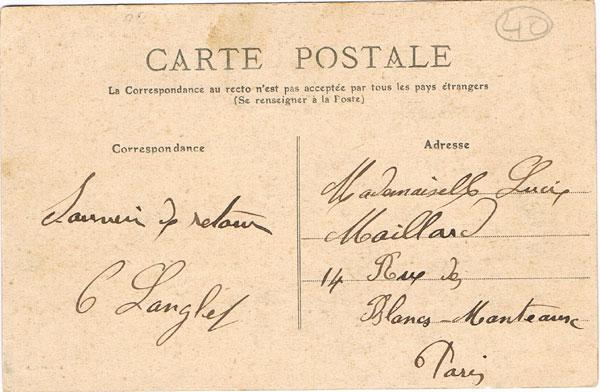 40
CARTE POSTALE
La Correspondance au recto n'est pas acceptée par tous les pays étrangers
(Se renseigner à la Poste)
Correspondance
Souvenir de retour
C Langlet
Adresse
Mademoiselle Lucie
Maillard
14 Rue des
Blancs-Manteaux
Paris